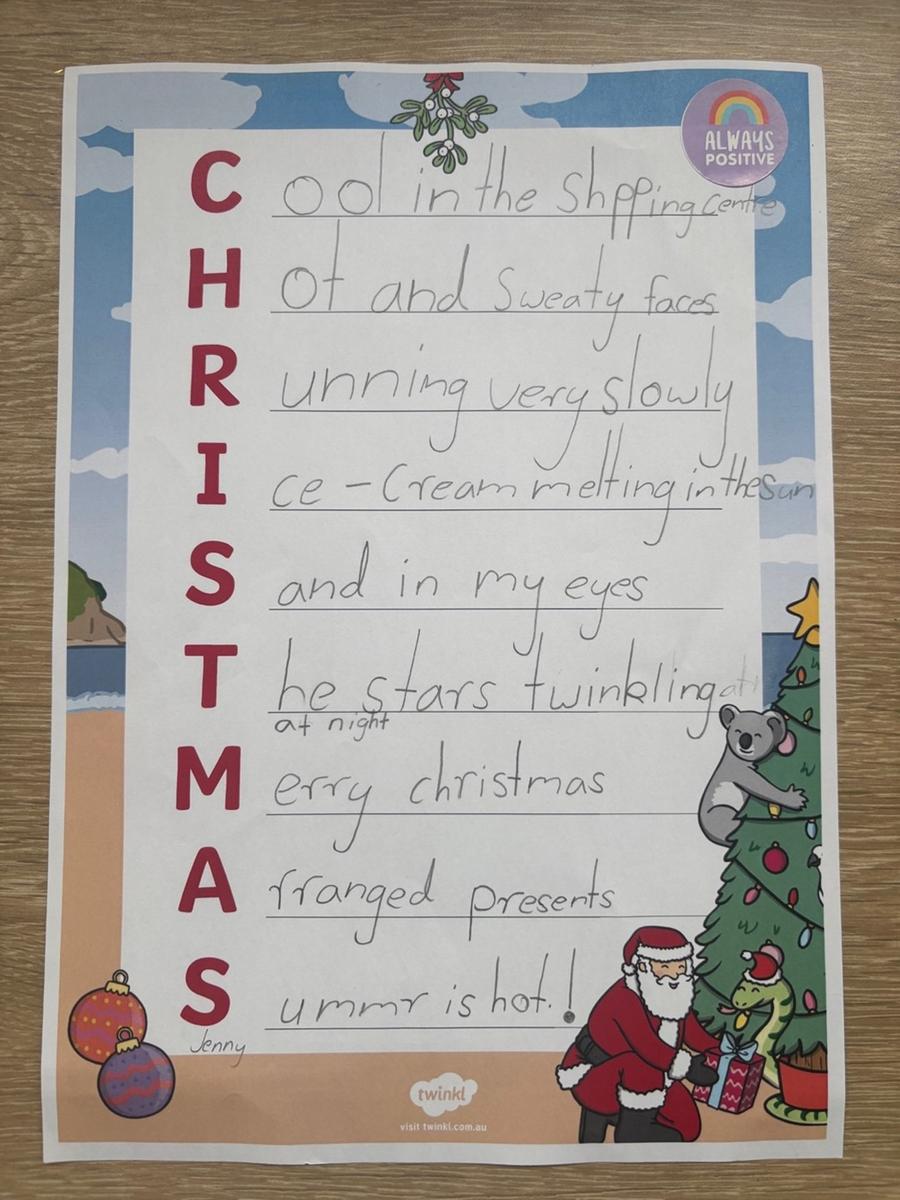 ALWAYS
POSITIVE
C ool in the Shpping Centre
H ot and Sweaty faces
R unning very slowly
I ce - Cream melting in the Sun
S and in my eyes
T he stars twinkling at
at night
M erry christmas
A rranged presents
S ummr is hot.!
Jenny
twinkl
visit twinkl.com.au